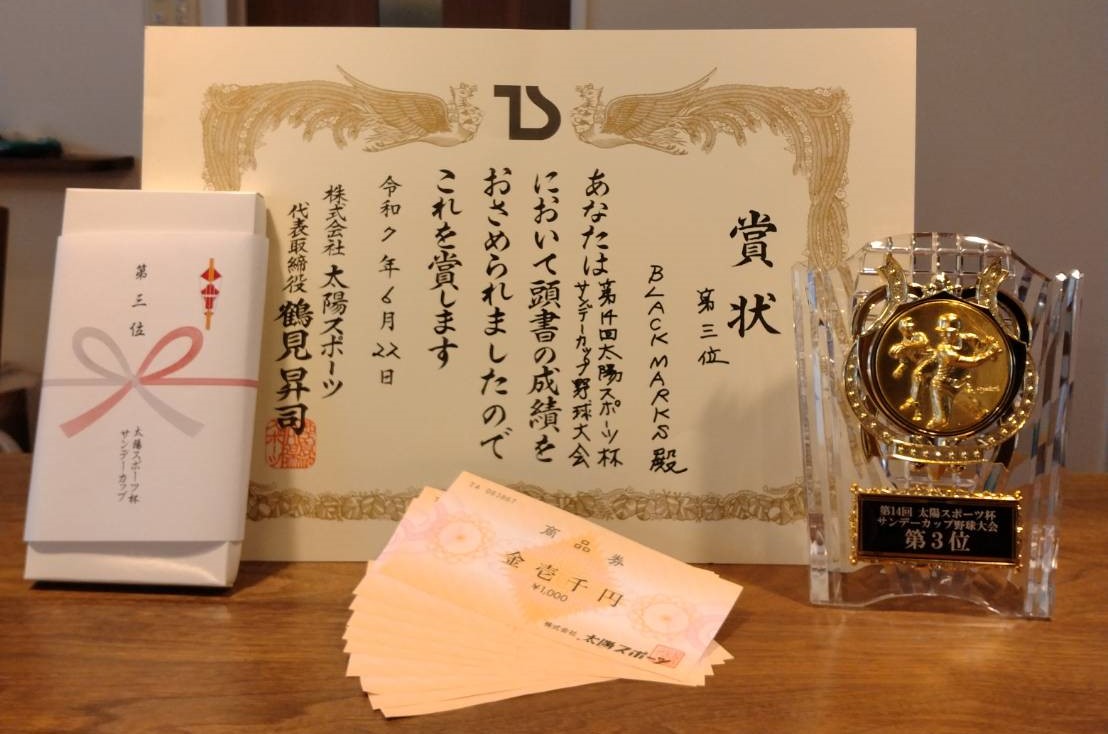 TS
賞状
第三位
BLACK MARKS殿
あなたは第14回太陽スポーツ杯
サンデーカップ野球大会
において頭書の成績を
おさめられましたので
これを賞します
令和7年6月22日
株式会社 太陽スポーツ
代表取締役 鶴見昇司
第三位
太陽スポーツ杯
サンデーカップ
商品券
金壱千円
¥1,000
株式会社 太陽スポーツ
第14回 太陽スポーツ杯
サンデーカップ野球大会
第3位